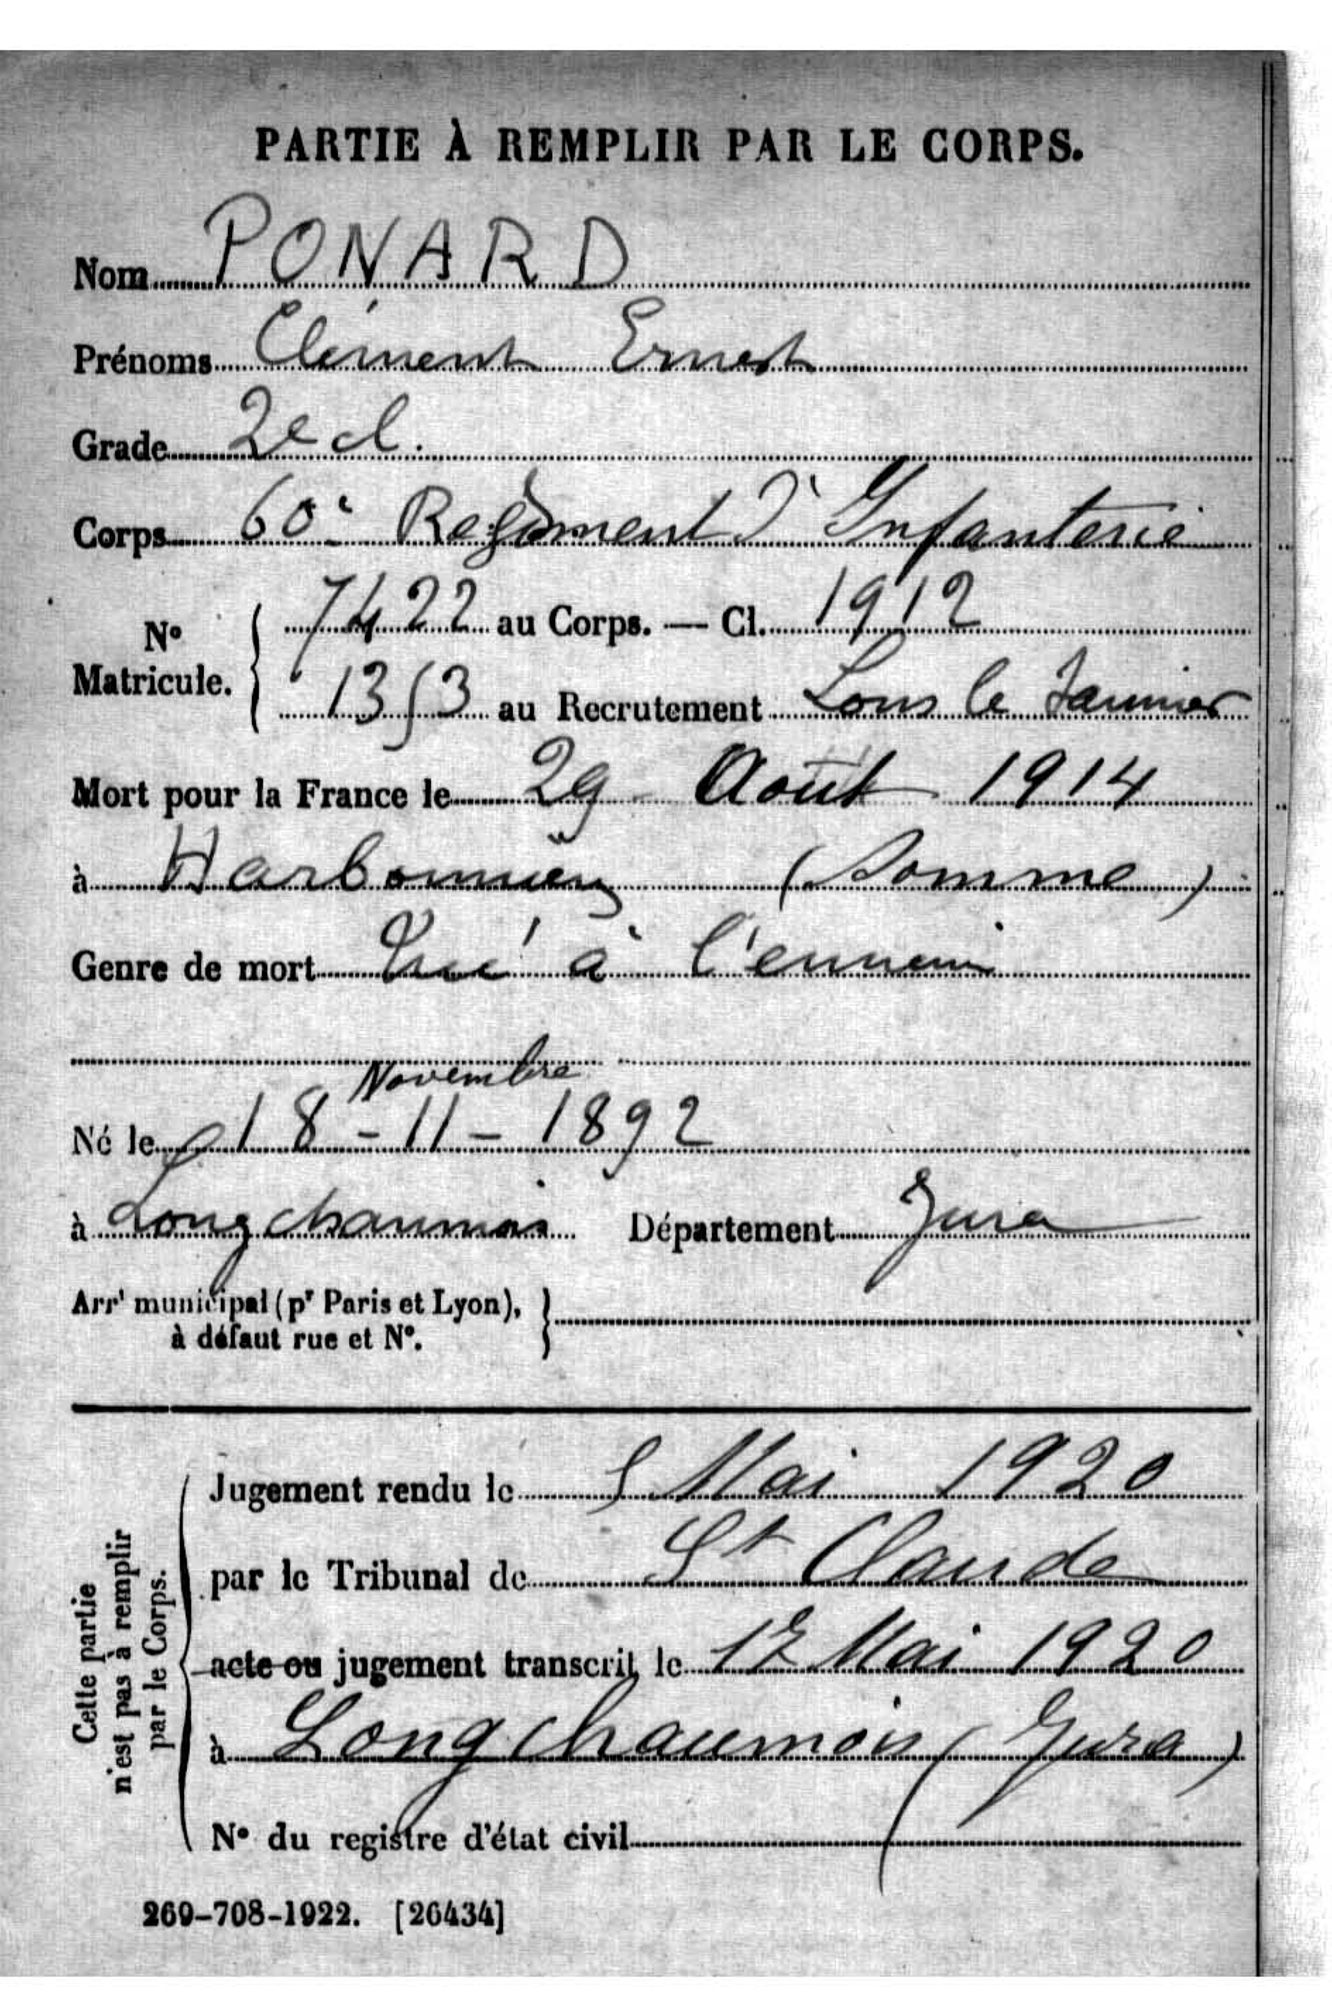 PARTIE À REMPLIR PAR LE CORPS.
Nom PONARD
Prénoms Clément Ernest
Grade 2e cl.
Corps 60e Regiment d'Infanterie
N° Matricule. { 7422 au Corps. — Cl. 1912
1353 au Recrutement Lons le Saunier
Mort pour la France le 29 Août 1914
à Harbonnières (Somme)
Genre de mort Tué à l'ennemi
Novembre
Né le 18-11-1892
à Longchaumois Département Jura
Arr' municipal (pr Paris et Lyon), }
à défaut rue et N°.
Cette partie
n'est pas à remplir
par le Corps.
Jugement rendu le 5 Mai 1920
par le Tribunal de St Claude
acte ou jugement transcrit le Mai 1920
à Longchaumois (Jura)
N° du registre d'état civil
269-708-1922. [26434]